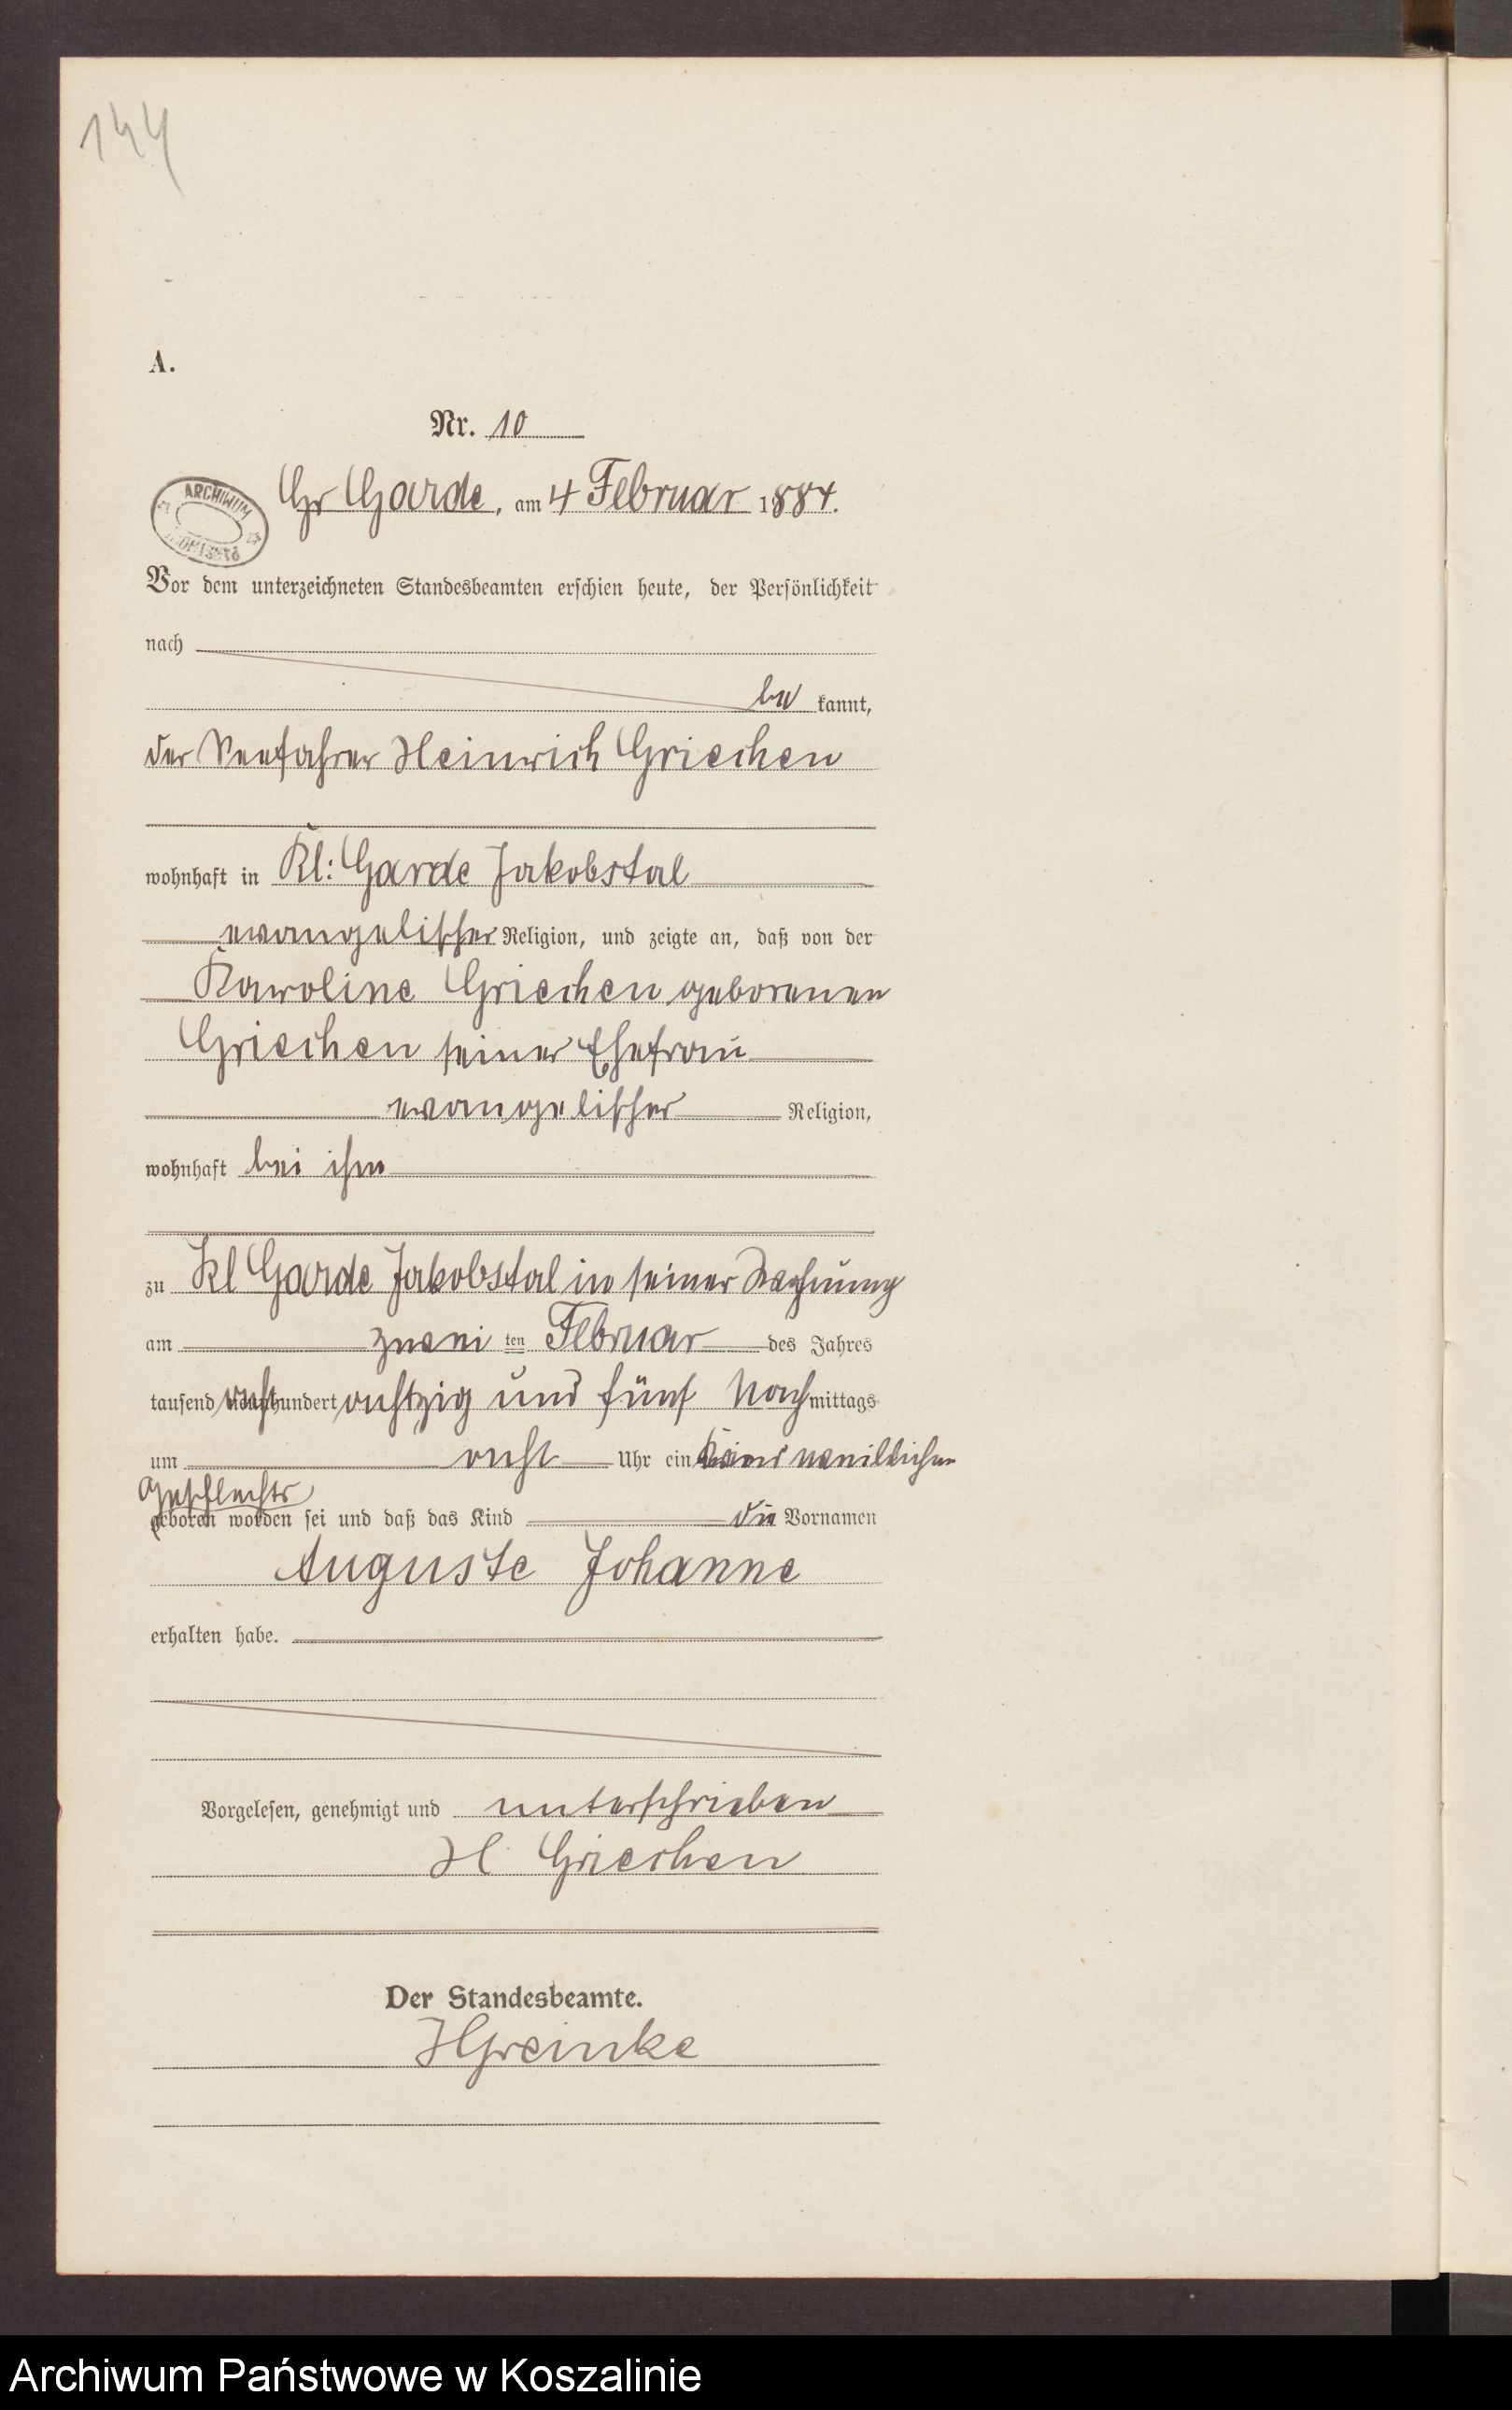 144
A.
Nr. 10
ARCHIWUM
Gr Garde, am 4 Februar 1884.
Vor dem unterzeichneten Standesbeamten erschien heute, der Persönlichkeit
nach
be kannt,
der Seefahrer Heinrich Griechen
wohnhaft in Kl: Garde Jakobstal
evangelischer Religion, und zeigte an, daß von der
Karoline Griechen geborenen
Griechen seiner Ehefrau
evangelischer Religion,
wohnhaft bei ihm
zu Kl Garde Jakobstal in seiner Wohnung
am zwei ten Februar des Jahres
tausend acht hundert achtzig und fünf Nach mittags
um acht Uhr ein Kind weiblichen
Geschlechts
geboren worden sei und daß das Kind die Vornamen
Auguste Johanne
erhalten habe.
Vorgelesen, genehmigt und unterschrieben
H Griechen
Der Standesbeamte.
HGreinke
Archiwum Państwowe w Koszalinie